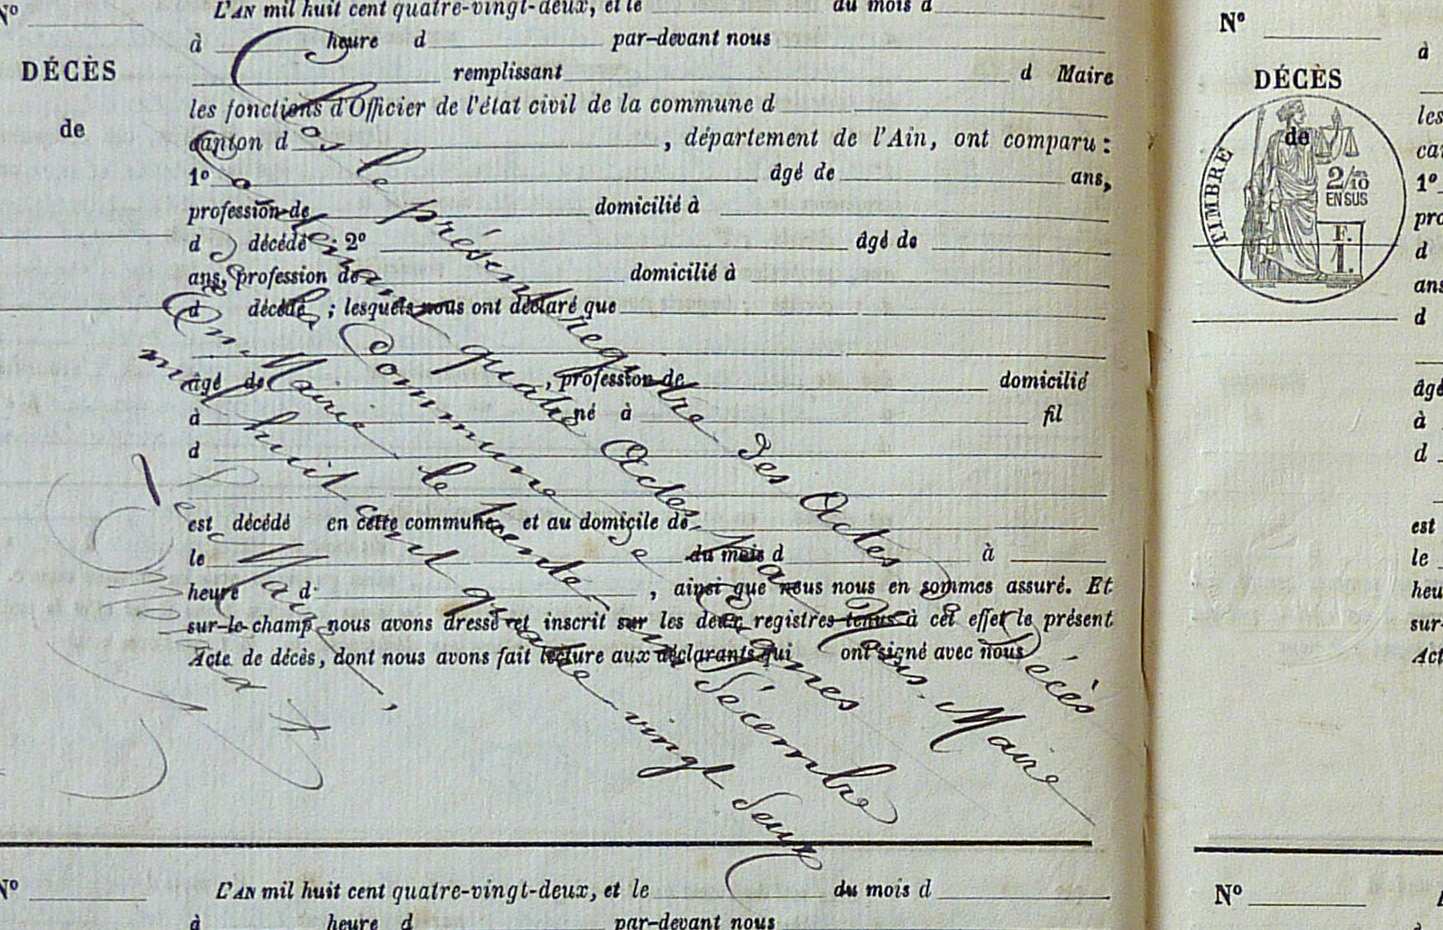 N° L'AN mil huit cent quatre-vingt-deux, et le du mois d
à heure d par-devant nous
DÉCÈS remplissant d Maire
les fonctions d'Officier de l'état civil de la commune d
de canton d , département de l'Ain, ont comparu :
1° âgé de ans,
profession de domicilié à
d décédé ; 2° âgé de
ans, profession de domicilié à
d décédé ; lesquels nous ont déclaré que
âgé de , profession de domicilié
à né à fil
d
est décédé en cette commune, et au domicile de
le du mois d à
heure d , ainsi que nous nous en sommes assuré. Et
sur-le-champ nous avons dressé et inscrit sur les deux registres tenus à cet effet le présent
Acte de décès, dont nous avons fait lecture aux déclarants qui ont signé avec nous
Clos le présent registre des Actes de Décès
Contenant quatre Actes par Nous, Maire
de la Commune de
En Mairie le trente un Décembre
mil huit cent quatre vingt deux
Le Maire,
N° L'AN mil huit cent quatre-vingt-deux, et le du mois d
à heure d par-devant nous
N°
à
DÉCÈS
les
de
TIMBRE
2/10
EN SUS
F.
1.
1°
pro
d
ans
d
âgé
à
d
est
le
heu
sur-
Act
N°